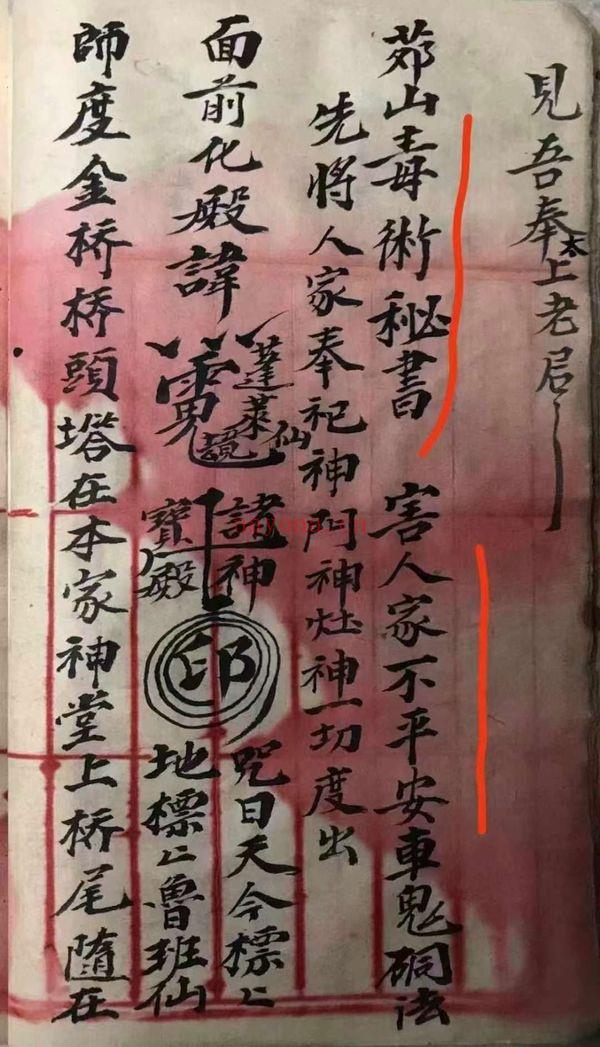 見吾奉太上老君
茅山毒術秘書 害人家不平安車鬼硐法
先將人家奉祀神門神灶神一切度出
面前化殿諱 蓬萊仙 諸神 寶殿 印 咒曰天今標〻
地標〻魯班仙
師度金桥桥頭塔在本家神堂上桥尾隨在